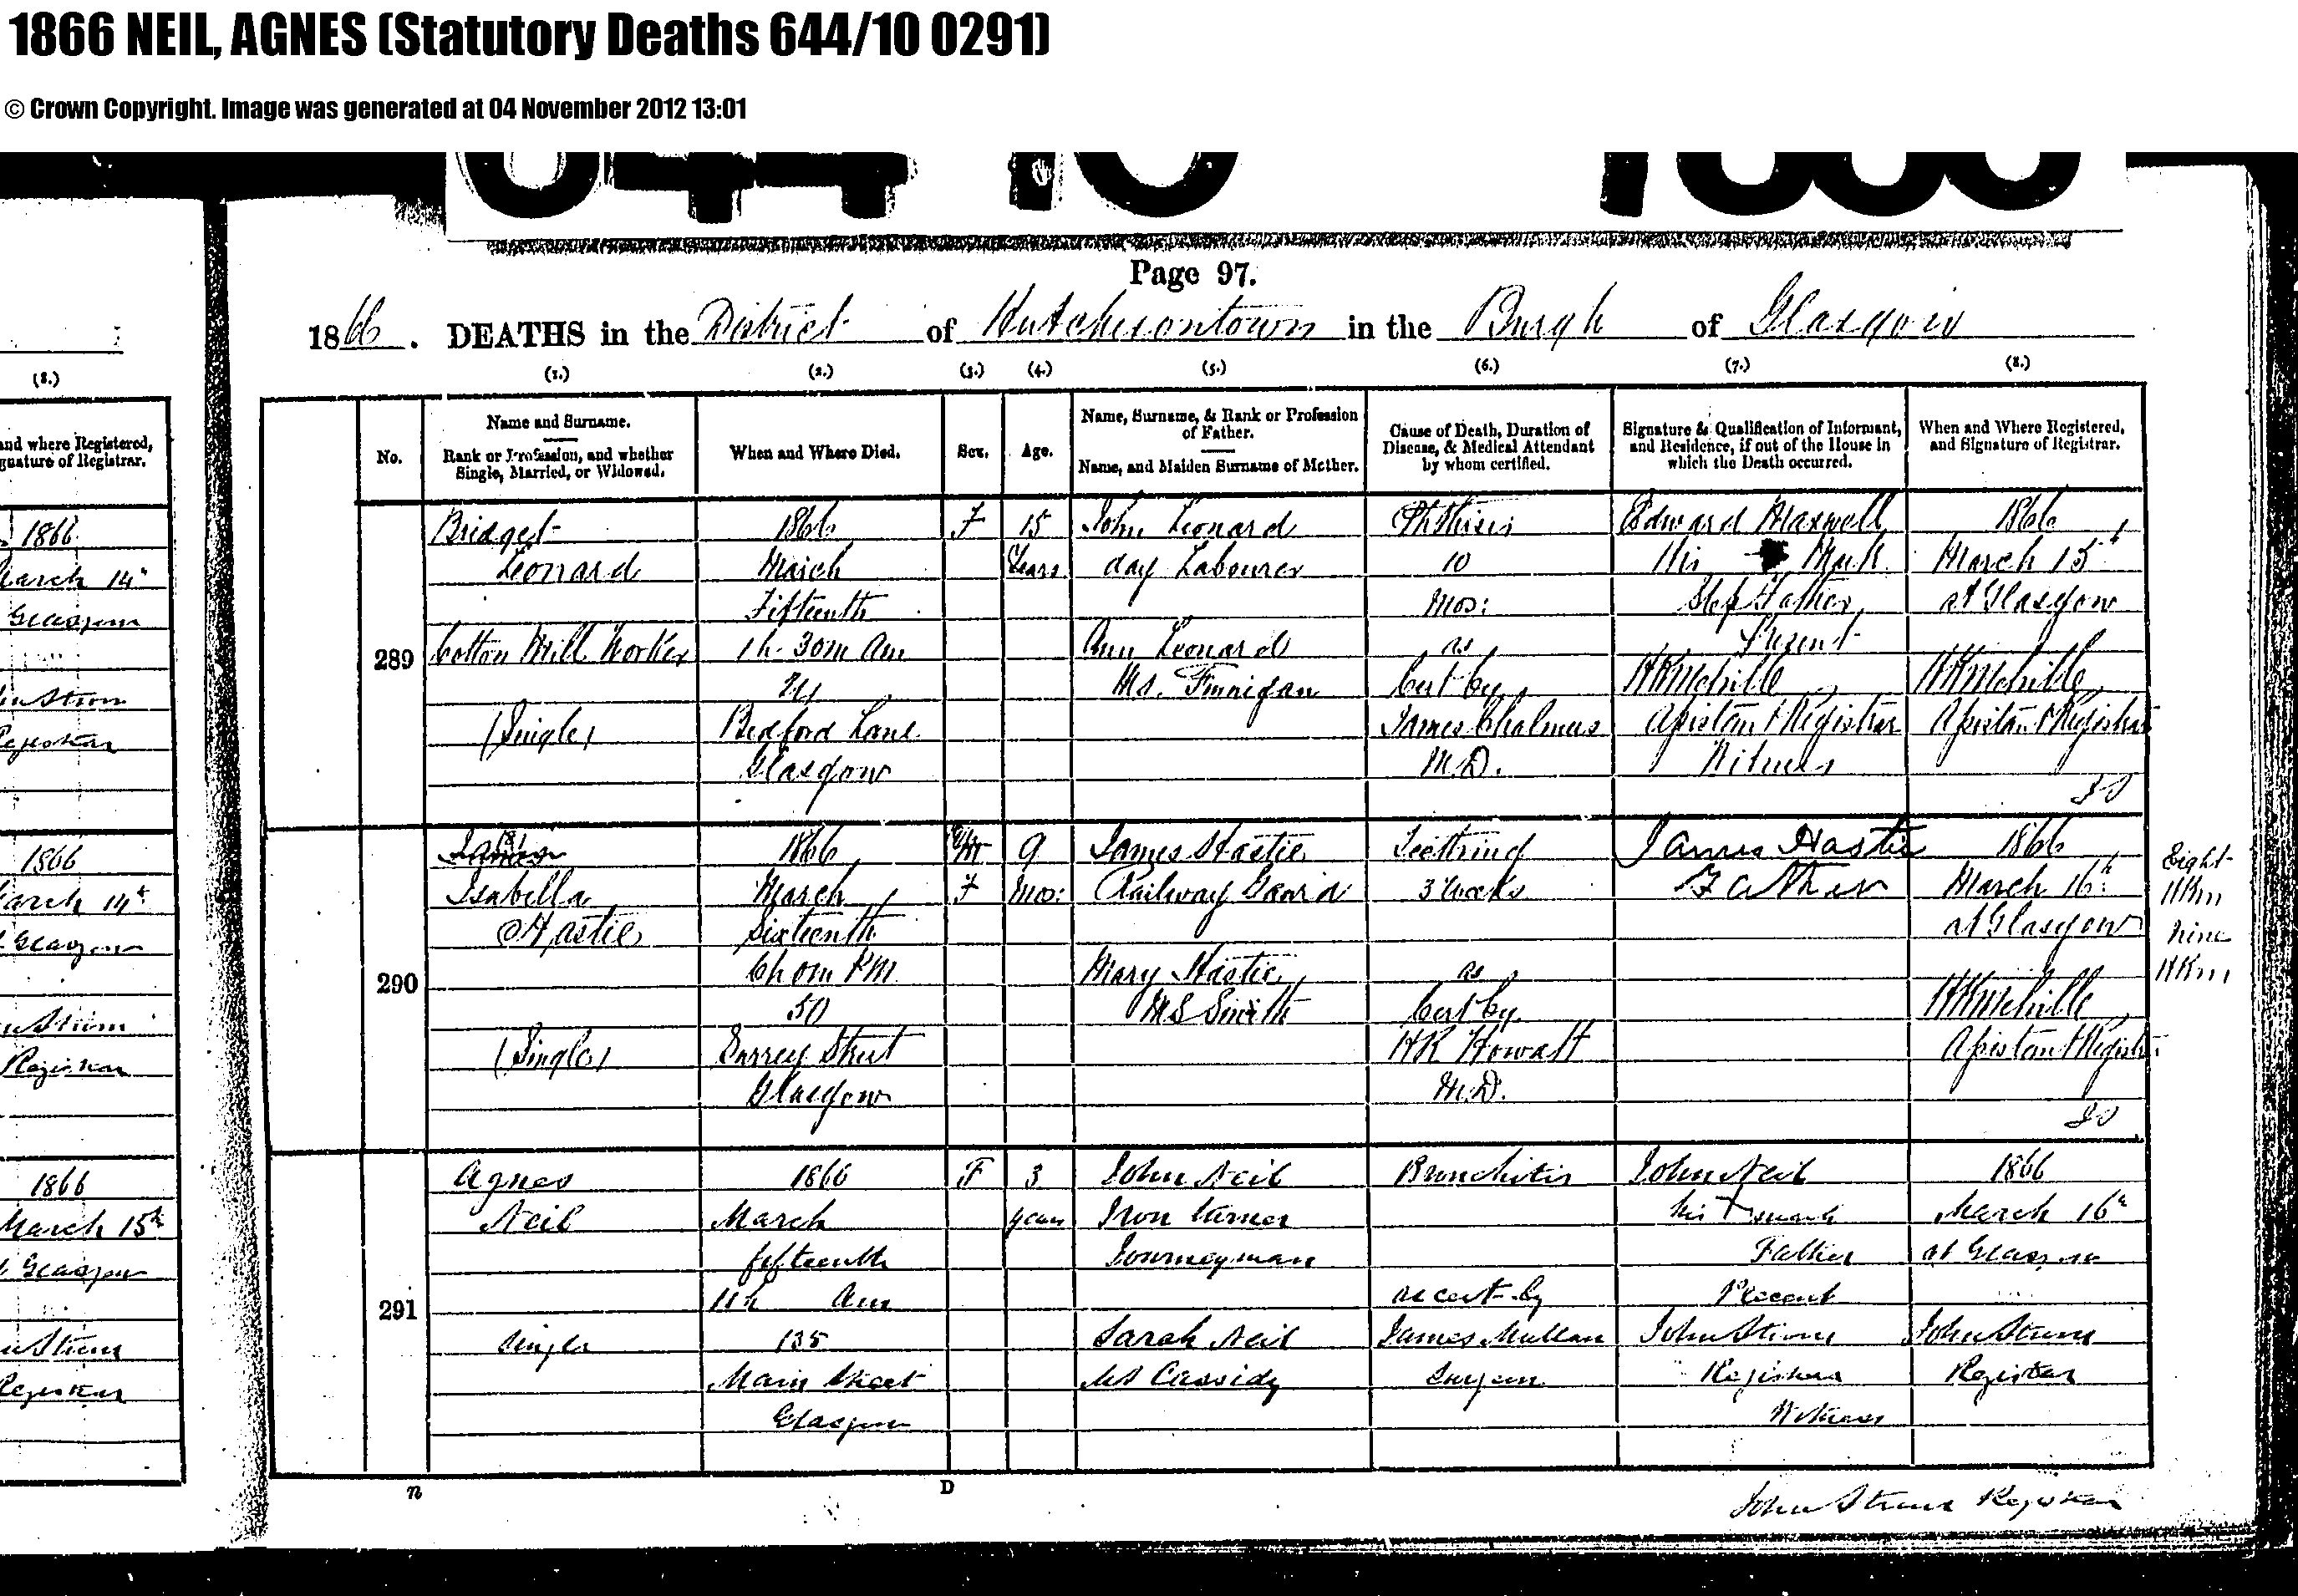 1866 NEIL, AGNES (Statutory Deaths 644/10 0291)
© Crown Copyright. Image was generated at 04 November 2012 13:01
644 10 1866
Page 97.
1866. DEATHS in the District of Hutchesontown in the Burgh of Glasgow
(8.)
and where Registered,
gnature of Registrar.
1866
March 14th
Glasgow
Registrar
1866
March 14th
Glasgow
Registrar
1866
March 15th
Glasgow
Registrar
(1.) (2.) (3.) (4.) (5.) (6.) (7.) (8.)
No.
Name and Surname.
Rank or Profession, and whether
Single, Married, or Widowed.
When and Where Died.
Sex.
Age.
Name, Surname, & Rank or Profession
of Father.
Name, and Maiden Surname of Mother.
Cause of Death, Duration of
Disease, & Medical Attendant
by whom certified.
Signature & Qualification of Informant,
and Residence, if out of the House in
which the Death occurred.
When and Where Registered,
and Signature of Registrar.
289
Bridget
Leonard
Cotton Mill Worker
(Single)
1866
March
Fifteenth
1h. 30m am
24
Bedford Lane
Glasgow
F
15
Years
John Leonard
day Labourer
Ann Leonard
Ms. Finnigan
Phthisis
10
Mos:
as
Cert by
James Chalmers
M.D.
Edward Maxwell
His Mark
Step Father
Present
HKMelville
Assistant Registrar
Witness
1866
March 15th
at Glasgow
HKMelville
Assistant Registrar
290
Isabella
Hastie
(Single)
1866
March
Sixteenth
6h 0m PM
50
Surrey Street
Glasgow
M
F
9
Mos:
James Hastie
Railway Guard
Mary Hastie
MS Smith
Teething
3 Weeks
as
Cert by
HR Howatt
M.D.
James Hastie
Father
1866
March 16th
at Glasgow
HKMelville
Assistant Registrar
Eight
HKM
nine
HKM
291
Agnes
Neil
Single
1866
March
fifteenth
11h am
135
Main Street
Glasgow
F
3
years
John Neil
Iron Turner
Journeyman
Sarah Neil
MS Cassidy
Bronchitis
as cert by
James Mullan
Surgeon
John Neil
his X mark
Father
Present
Registrar
Witness
1866
March 16th
at Glasgow
Registrar
n D
Registrar